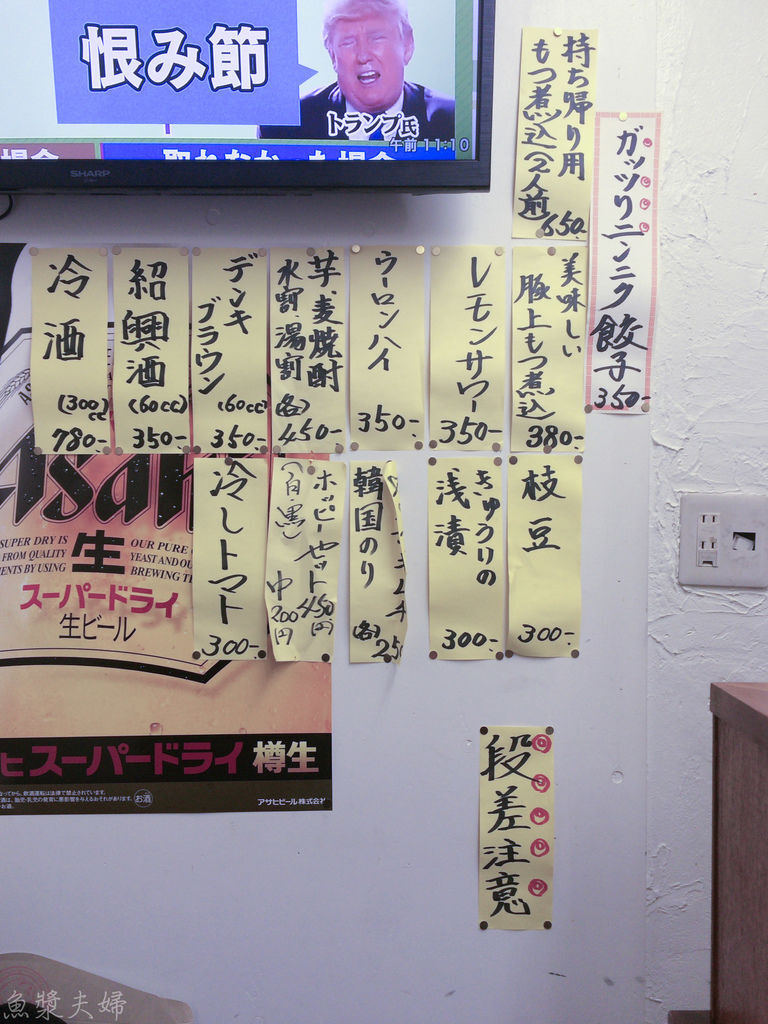 恨み節
トランプ氏
午前11:10
SHARP
持ち帰り用
もつ煮込(2人前)
650-
ガッツリニンニク餃子
350-
美味しい
豚上もつ煮込
380-
レモンサワー
350-
ウーロンハイ
350-
芋麦焼酎
水割湯割
(各)
450-
デンキ
ブラウン
(60cc)
350-
紹興酒
(60cc)
350-
冷酒
(300cc)
780-
枝豆
300-
きゅうりの
浅漬
300-
韓国のり
(各)
ホッピーセット450円
(白黒)中200円
冷しトマト
300-
段差注意
Asahi
SUPER DRY IS
FROM QUALITY
BY USING
生
OUR PURE
YEAST AND
BREWING
スーパードライ
生ビール
スーパードライ 樽生
お酒
アサヒビール株式会社
魚漿夫婦